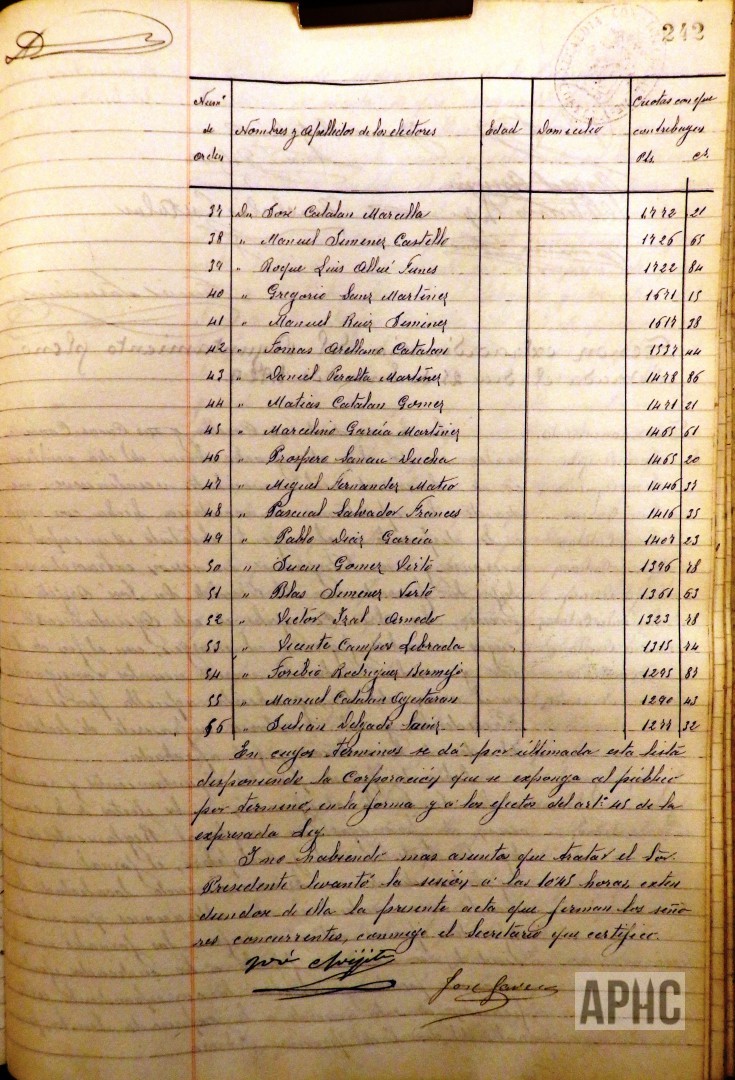 242
Num.º de orden Nombres y Apellidos de los electores Edad Domicilio Cuotas con que contribuyen Pts. Cs.
37 Dn José Catalan Marcilla 1772 21
38 " Manuel Jimenez Castillo 1726 65
39 " Roque Luis Allué Funes 1722 84
40 " Gregorio Sanz Martinez 1671 15
41 " Manuel Ruiz Jimenez 1617 38
42 " Tomas Arellano Catalan 1537 44
43 " Daniel Peralta Martinez 1478 86
44 " Matias Catalan Gomez 1471 21
45 " Marcelino García Martinez 1465 61
46 " Prospero Sanau Ducha 1465 20
47 " Miguel Fernandez Mateo 1446 37
48 " Pascual Salvador Frances 1416 35
49 " Pablo Diaz García 1407 23
50 " Juan Gomez Virto 1396 78
51 " Blas Jimenez Virto 1361 63
52 " Victor Tral Arnedo 1323 78
53 " Vicente Campos Librada 1315 74
54 " Toribio Rodriguez Bermejo 1295 87
55 " Manuel Catalan 1290 43
56 " Julian Delgado Sainz 1277 32
En cuyos términos se dá por ultimada esta lista
disponiendo la Corporación que se exponga al público
por término, en la forma y á los efectos del artº 45 de la
expresada Ley.
Y no habiendo mas asuntos que tratar el Sor.
Presidente levantó la sesión á las 10'45 horas, exten
diendose de ella la presente acta que firman los seño
res concurrentes, conmigo el Secretario que certifico.
José
José
APHC